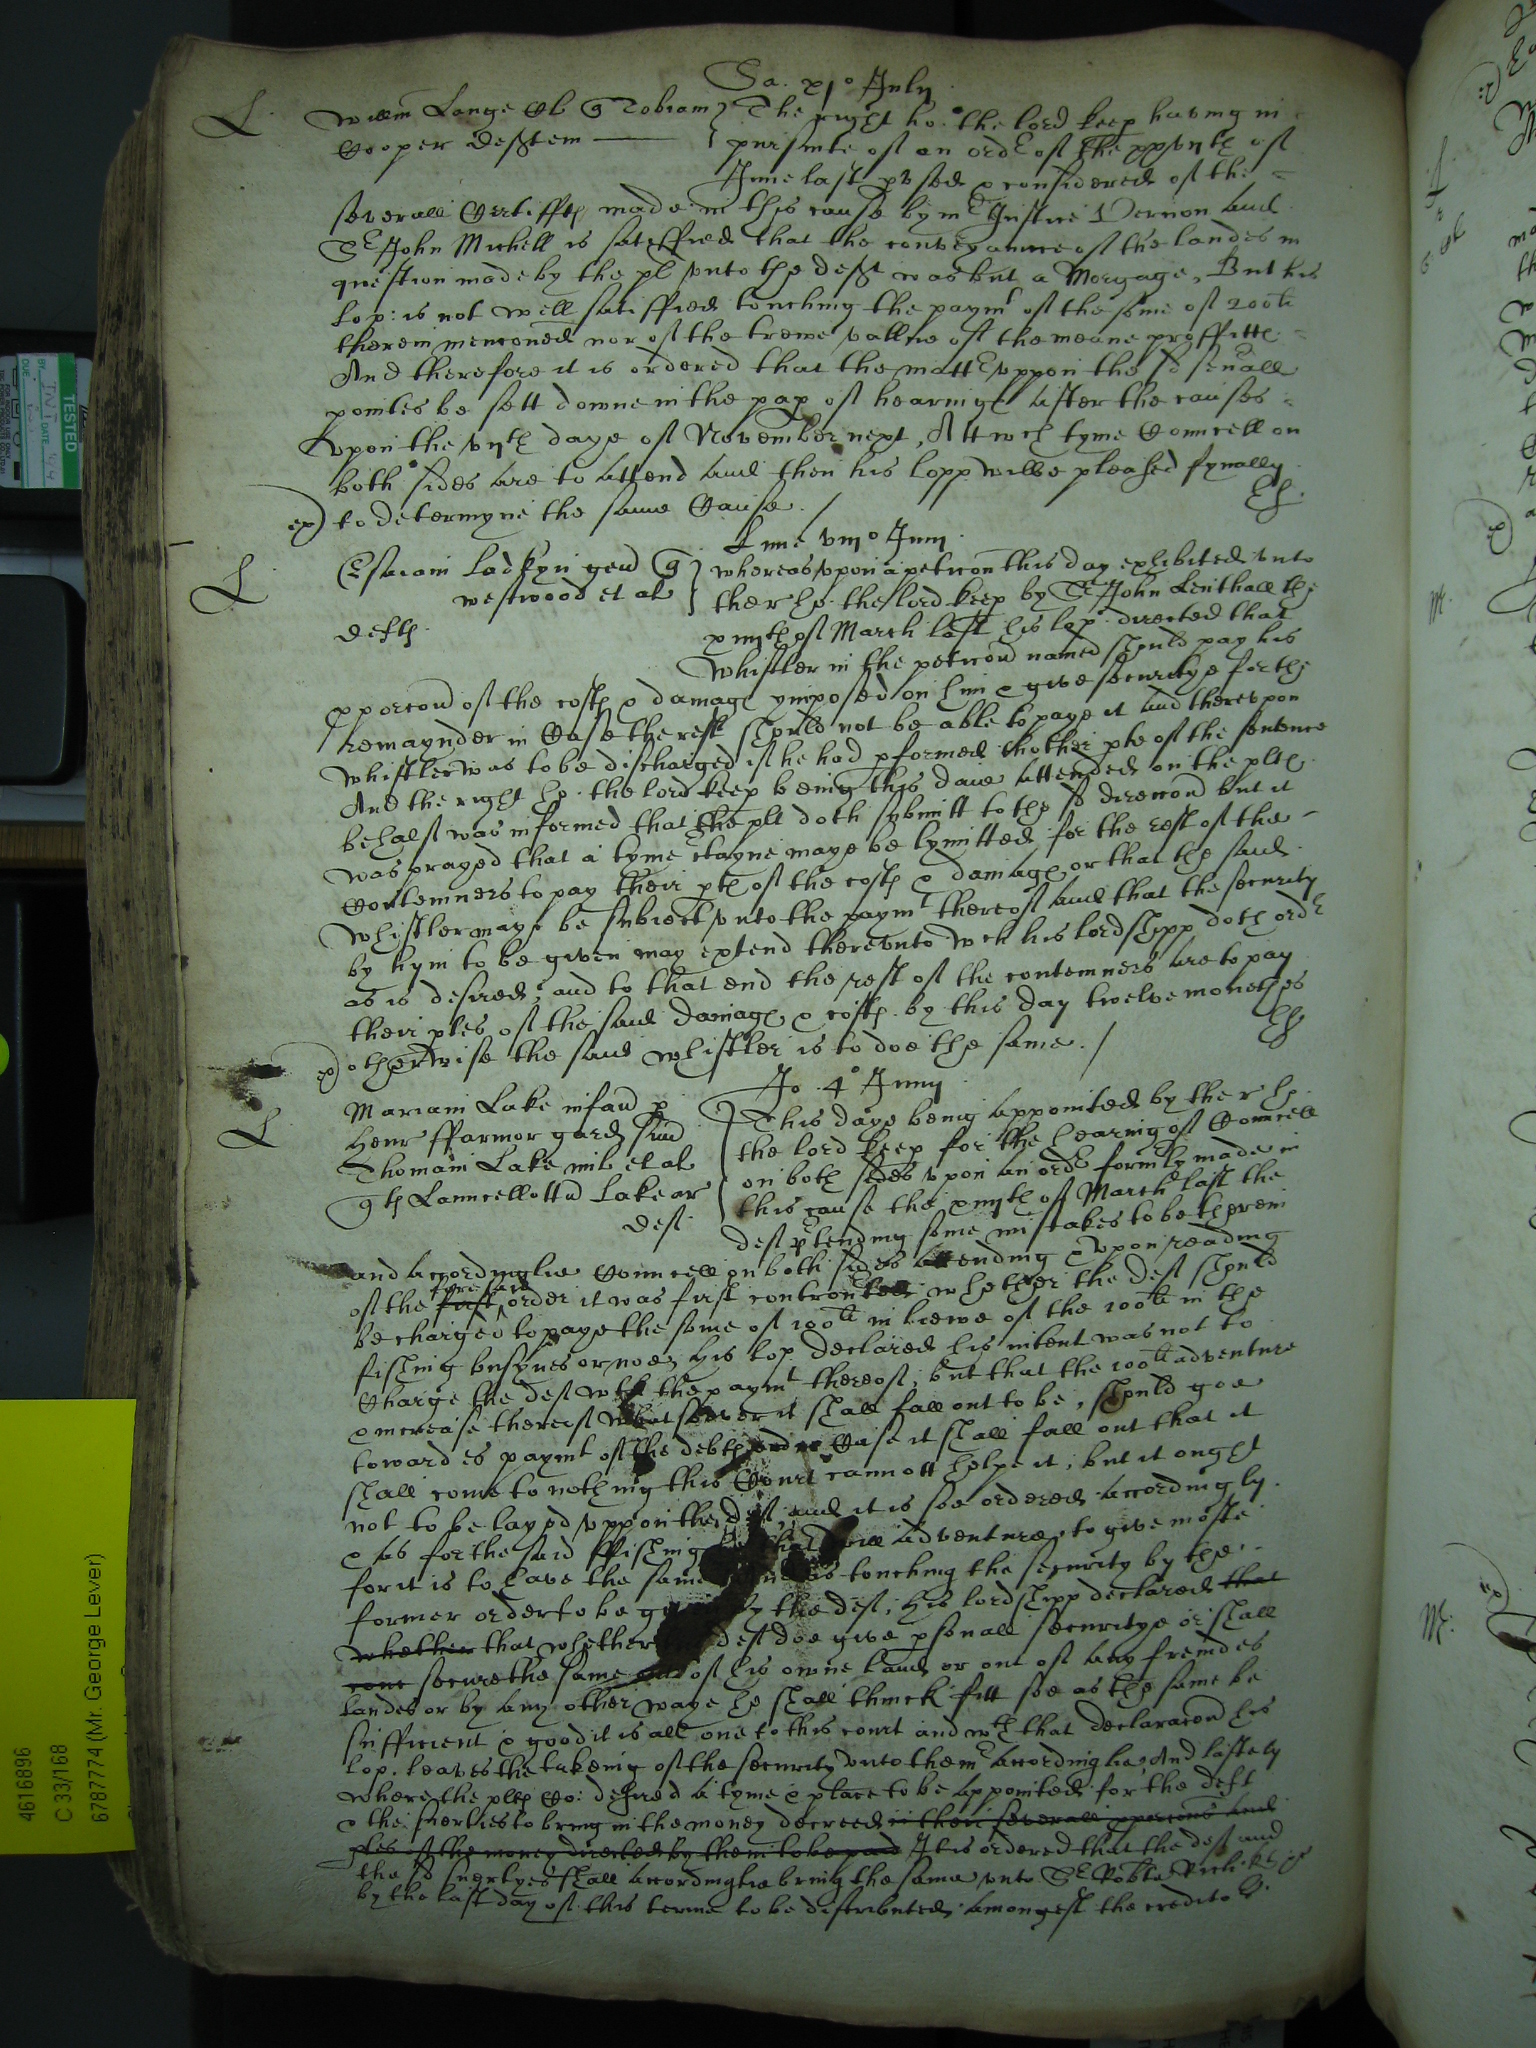 Sa. xj° July
L Willm Lange Ql Tobiam The right ho: the lord keep having in
Cooper deftem pursuite of an ordr of the
June last pused & considered of the
severall Certiffts made in this cause by mr Justice Vernon and
Sr John Michell is satisfied that the conveyannce of the landes in
question made by the pl vnto the deft was but a Morgage, But his
lop: is not well satisffied touching the paymt of the some of 200li
therein menconed nor of the trewe vallue of the meane proffitts
And therefore it is ordered that the mattr vppon the sd seuall
pointes be sett downe in the pap of hearings after the causes
Vpon the vijth daye of November next, Att wch tyme Councell on
both sides are to attend and then his lopp wilbe pleased fynally
ex) to determyne the same Cause. /
Lune viij° Junij
L Ladkyn gen whereas vpon a peticon this day exhibited vnto
Westwood et al the r ho. the lord keep by Sr John Lenthall the
defts xiiijth of March last his lop directed that
Whistler in the peticon named should pay his
pporcon of the costs & damags ymposed on him & give securitye for the
remaynder in Case the rest should not be able to paye it and therevpon
Whistler was to be discharged if he had pformed thother pte of the sentence
And the right ho. the lord keep being this daie attended on the plts
behalf was informed that the plt doth submitt to the sd direccon but it
was prayed that a tyme ctayne maye be lymitted for the rest of the
Contemners to pay their pts of the costs & damags or that the said
Whistler maye be subiect vnto the paymt thereof and that the security
by hym to be given may extend therevnto wch his lordshipp doth ordr
as is desired, and to that end the rest of the contemners are to pay
their ptes of the said damags & costs by this day twelve monethes
ex) otherwise the said Whistler is to doe the same. /
Jo. 4° Junij
L Mariam Lake infan p This daye being appointed by the r ho
Henr ffarmor gard suu the lord keep for the hearing of Councell
Thomam Lake mil et al on both sides vpon an ordr formly made in
Launcellottu Lake ar this cause the xiiijth of March last the
def def ptending some mistakes to be therein
and accordinglie Councell on both sides attending & vpon reading
of the first order it was first whether the def should
be charged to paye the some of 100li in liewe of the 100li in the
fishing busynes or noe, His lop declared his intent was not to
Charge the def wth the paymt thereof, but that the 100li adventure
& increase thereof whatsoever it shall fall out to be, should goe
towardes paymt of the debts and in Case it shall fall out that it
shall come to nothing this Court cannott helpe it, but it ought
not to be layed vppon the def, and it is soe ordered accordingly.
& as for the said ffishing adventure to give moste
for it is to have the same touching the security by the
former order to be by the def, His lordshipp declared that
whether that whether def doe give psonall securitye or shall
secure the same out of his owne land or out of any freindes
landes or by any other waye he shall thinck fitt soe as the same be
sufficient & good it is all one to this court and wth that declaracon his
lop. leaves the takeing of the security vnto them accordinglie, And lastely
where the plts Co: desired a tyme & place to be appointed for the deft
& the suerties to bring in the money decreed in their severall pporcons and
ptes of the money directed by them to be paid It is ordered that the def and
the sd suertyes shall accordinglie bring the same vnto Sr Robte Rich
by the last day of this terme to be distributed amongest the creditors.
TESTED
4616896
C 33/168
6787774 (Mr. George Lever)